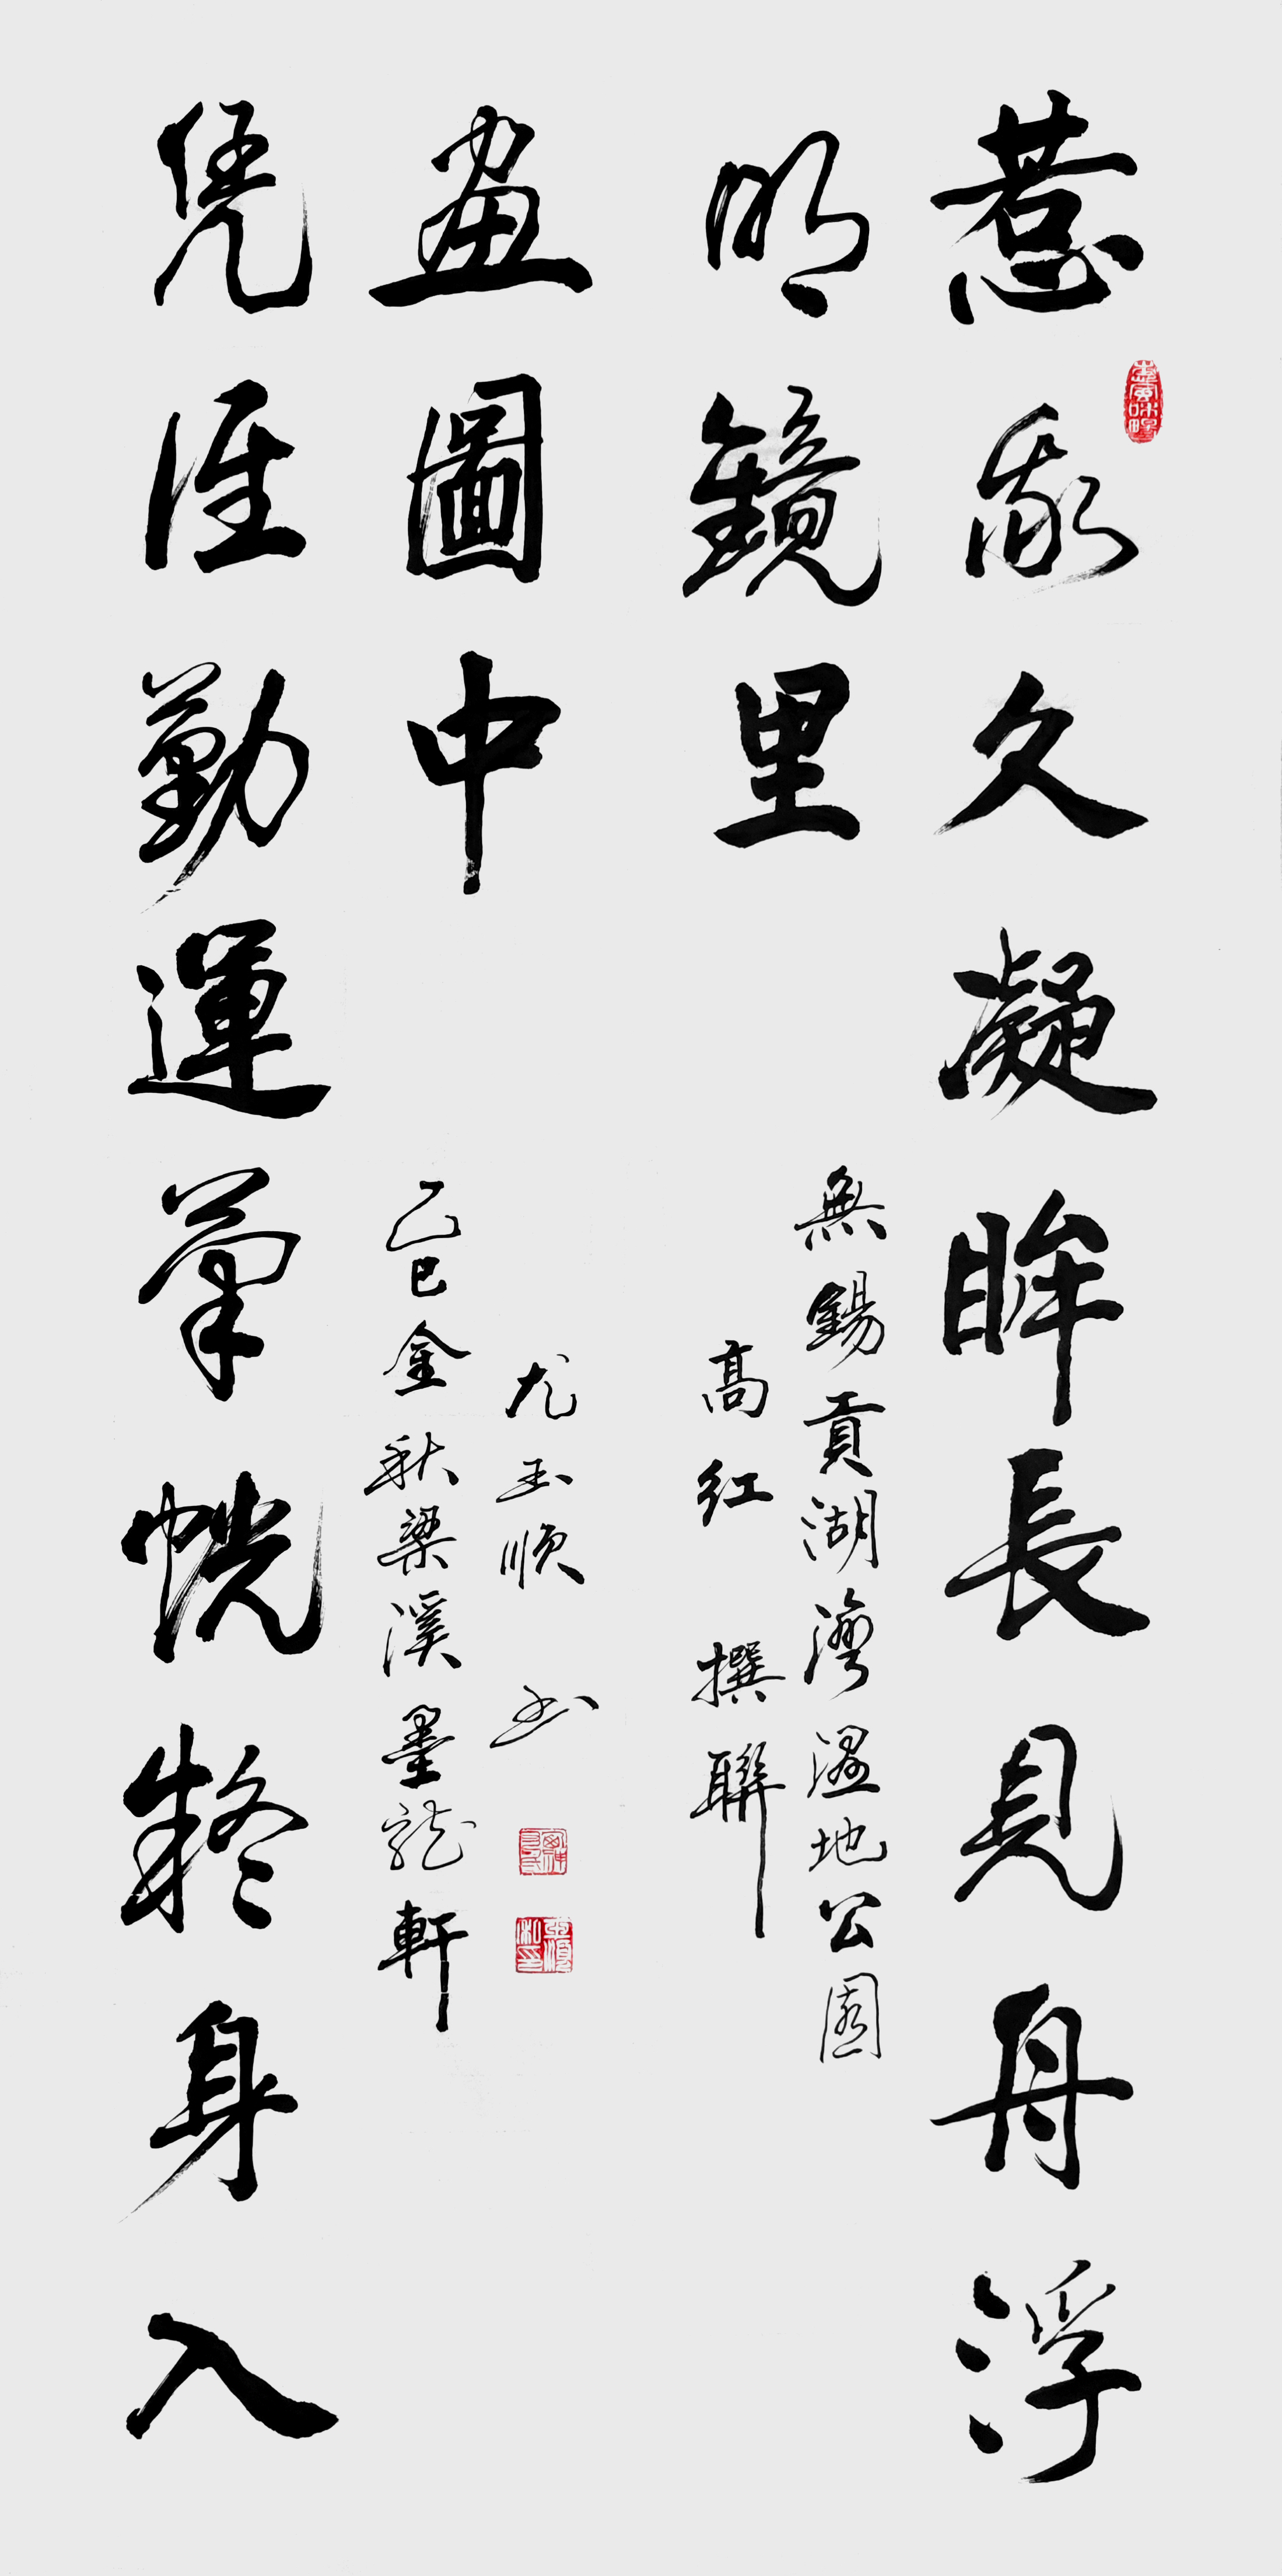 惹我久凝眸長見舟浮
明鏡里
無錫貢湖灣濕地公園
高红撰聯
凭谁勤運筆恍疑身入
畫圖中
尤玉順书
乙巳金秋梁溪墨龍軒